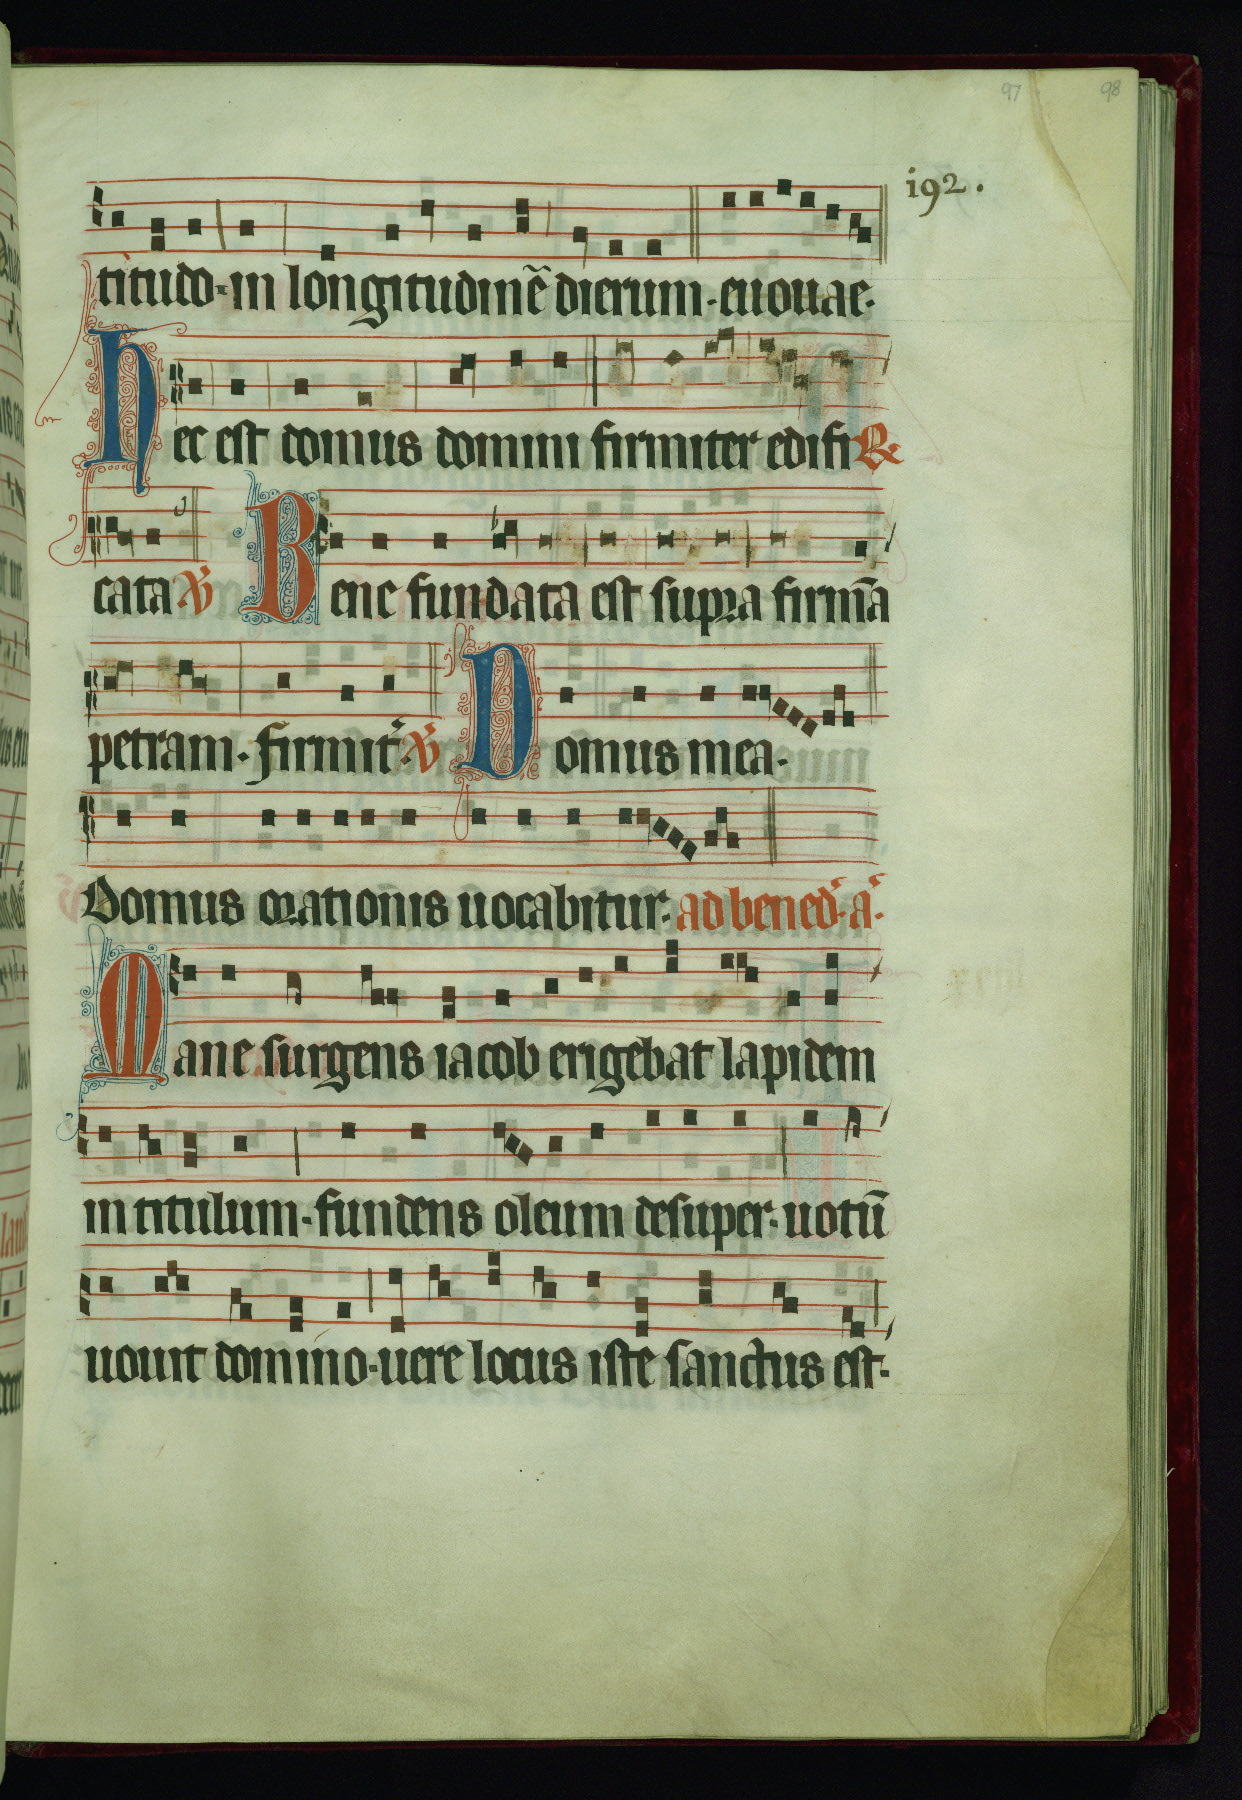 97 98
192.
titudo·in longitudinē dierum·euouae·
Hec est domus domini firmiter edifi R
cata V Bene fundata est supra firmā
petram·firmit' V Domus mea·
Domus orationis uocabitur· ad bened'·a'·
Mane surgens iacob erigebat lapidem
in titulum·fundens oleum desuper·uotū
uouit domino·uere locus iste sanctus est·